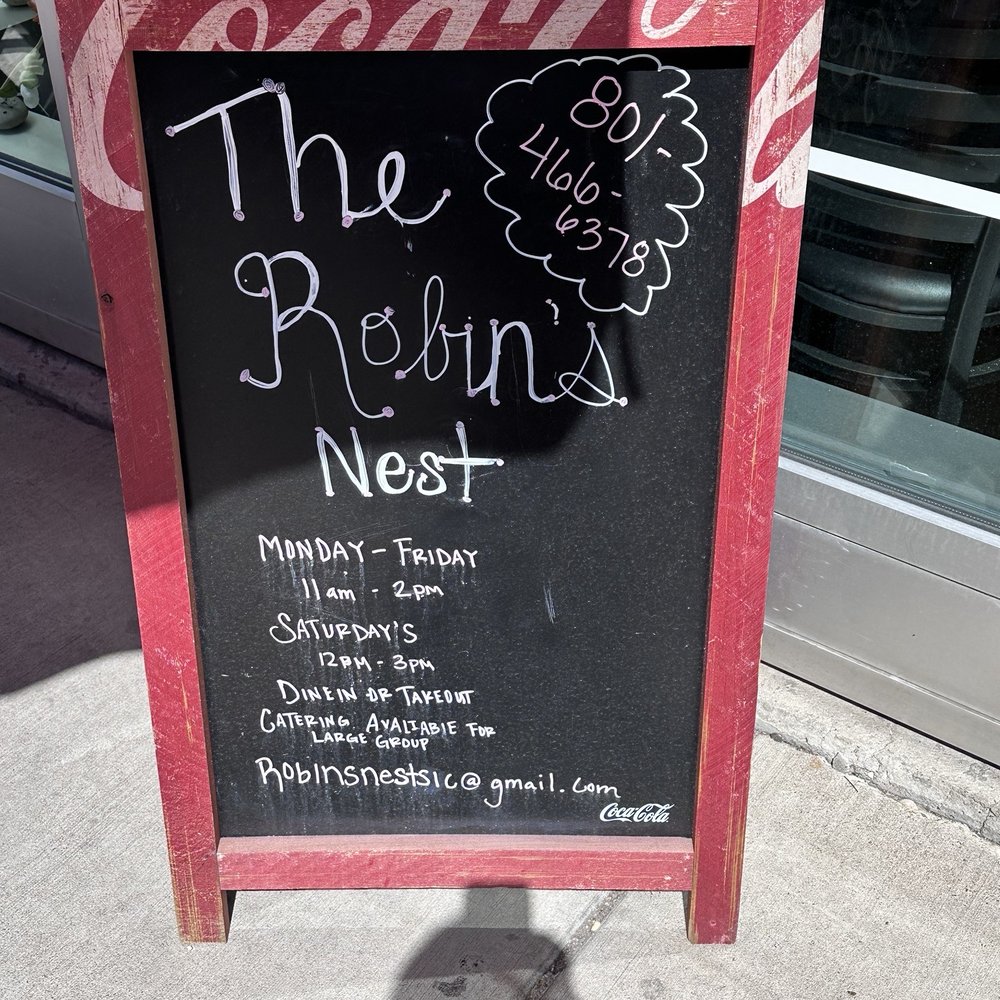 Coca-Cola
The
801-
466-
6378
Robin's
Nest
MONDAY - FRIDAY
11am - 2pm
SATURDAY'S
12PM - 3PM
DINE IN OR TAKEOUT
CATERING AVALIABLE FOR
LARGE GROUP
Robinsnestslc@gmail.com
Coca-Cola